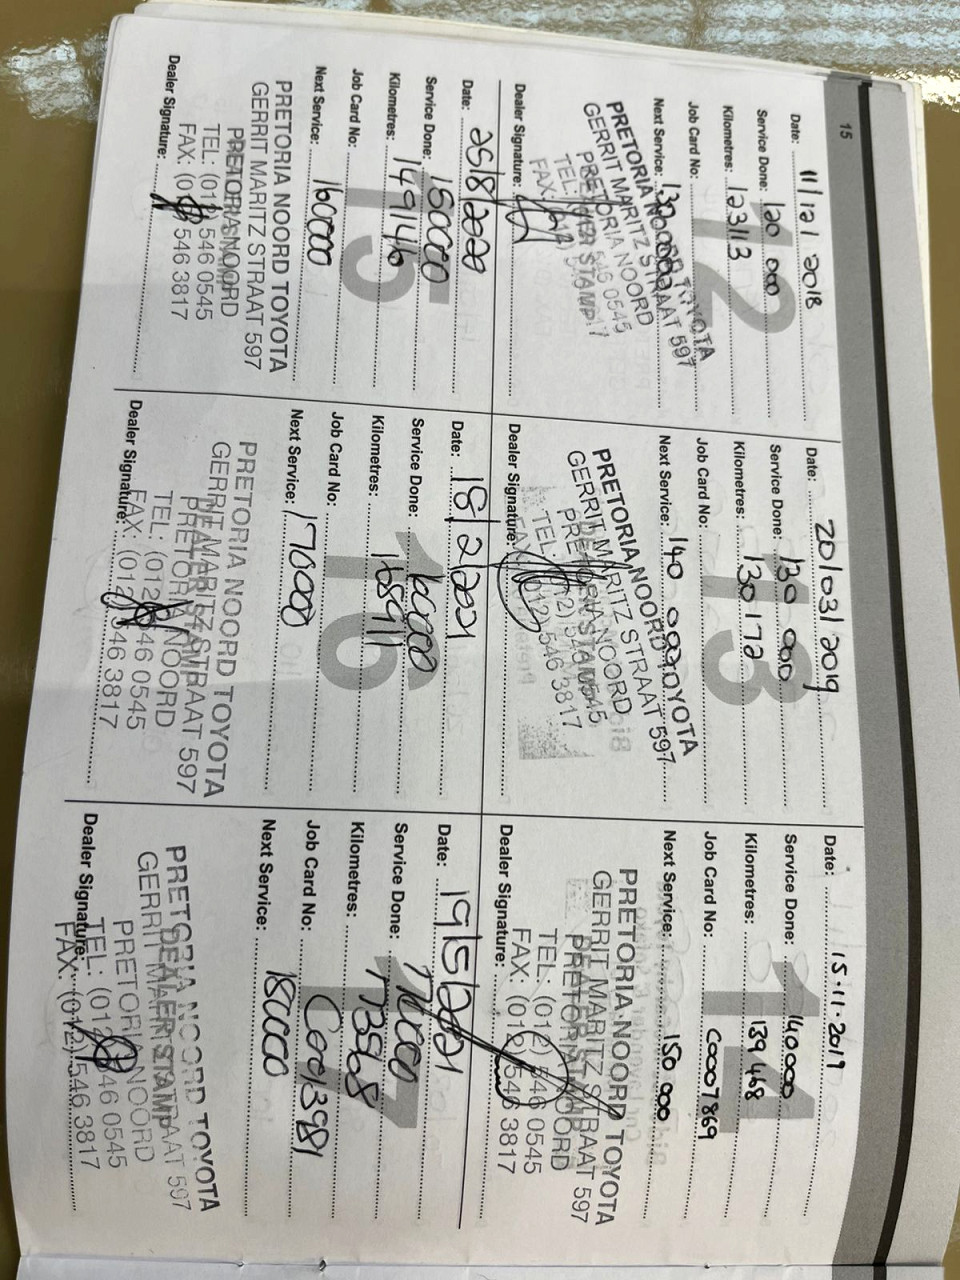 15
12
Date: 11/12/2018
Service Done: 120 000
Kilometres: 123113
Job Card No:
Next Service: 130000
PRETORIA NOORD TOYOTA
GERRIT MARITZ STRAAT 597
PRETORIA NOORD
DEALER STAMP
TEL: (012) 546 0545
FAX: (012) 546 3817
Dealer Signature:
13
Date: 20/03/2019
Service Done: 130 000
Kilometres: 130172
Job Card No:
Next Service: 140 000
PRETORIA NOORD TOYOTA
GERRIT MARITZ STRAAT 597
PRETORIA NOORD
DEALER STAMP
TEL: (012) 546 0545
FAX: (012) 546 3817
Dealer Signature:
14
Date: 15.11.2019
Service Done: 140000
Kilometres: 139468
Job Card No: C0007869
Next Service: 150 000
PRETORIA NOORD TOYOTA
GERRIT MARITZ STRAAT 597
PRETORIA NOORD
TEL: (012) 546 0545
FAX: (012) 546 3817
Dealer Signature:
15
Date: 25/8/2020
Service Done: 15000
Kilometres: 149146
Job Card No:
Next Service: 160000
PRETORIA NOORD TOYOTA
GERRIT MARITZ STRAAT 597
PRETORIA NOORD
TEL: (012) 546 0545
FAX: (012) 546 3817
Dealer Signature:
16
Date: 18/2/2021
Service Done: 160000
Kilometres: 168911
Job Card No:
Next Service: 170000
PRETORIA NOORD TOYOTA
GERRIT MARITZ STRAAT 597
DEALER STAMP
PRETORIA NOORD
TEL: (012) 546 0545
FAX: (012) 546 3817
Dealer Signature:
17
Date: 19/5/2021
Service Done: 170000
Kilometres: 177368
Job Card No: C0013981
Next Service: 180000
PRETORIA NOORD TOYOTA
GERRIT MARITZ STRAAT 597
DEALER STAMP
PRETORIA NOORD
TEL: (012) 546 0545
FAX: (012) 546 3817
Dealer Signature: